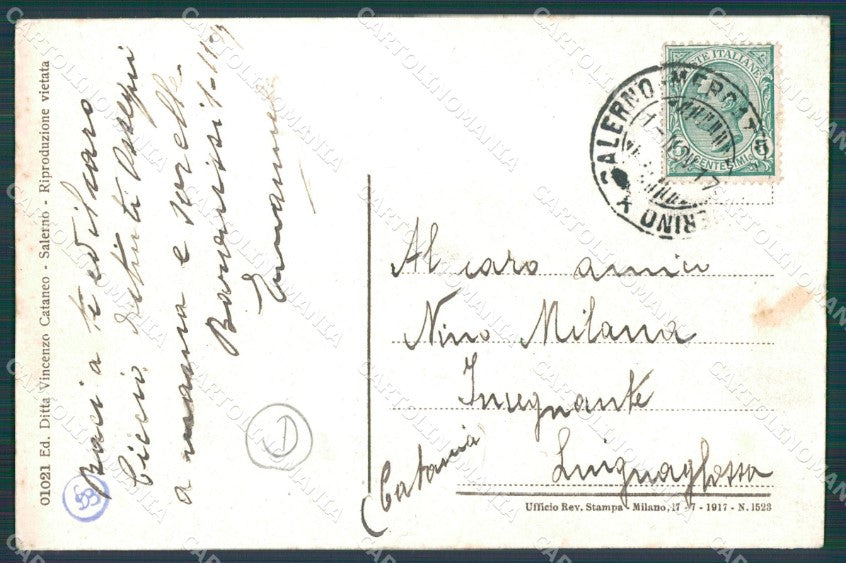 01021 Ed. Ditta Vincenzo Cataneo - Salerno - Riproduzione vietata
Baci a te ed il caro
Ciccio
a mamma e sorelle
Ufficio Rev. Stampa - Milano, 17 - 7 - 1917 - N. 1523
POSTE ITALIANE
CENTESIMI
5
SALERNO-MERCATO
Al caro amico
Nino Milana
Insegnante
Linguaglossa
(Catania
53
1
CARTOLINOMANIA